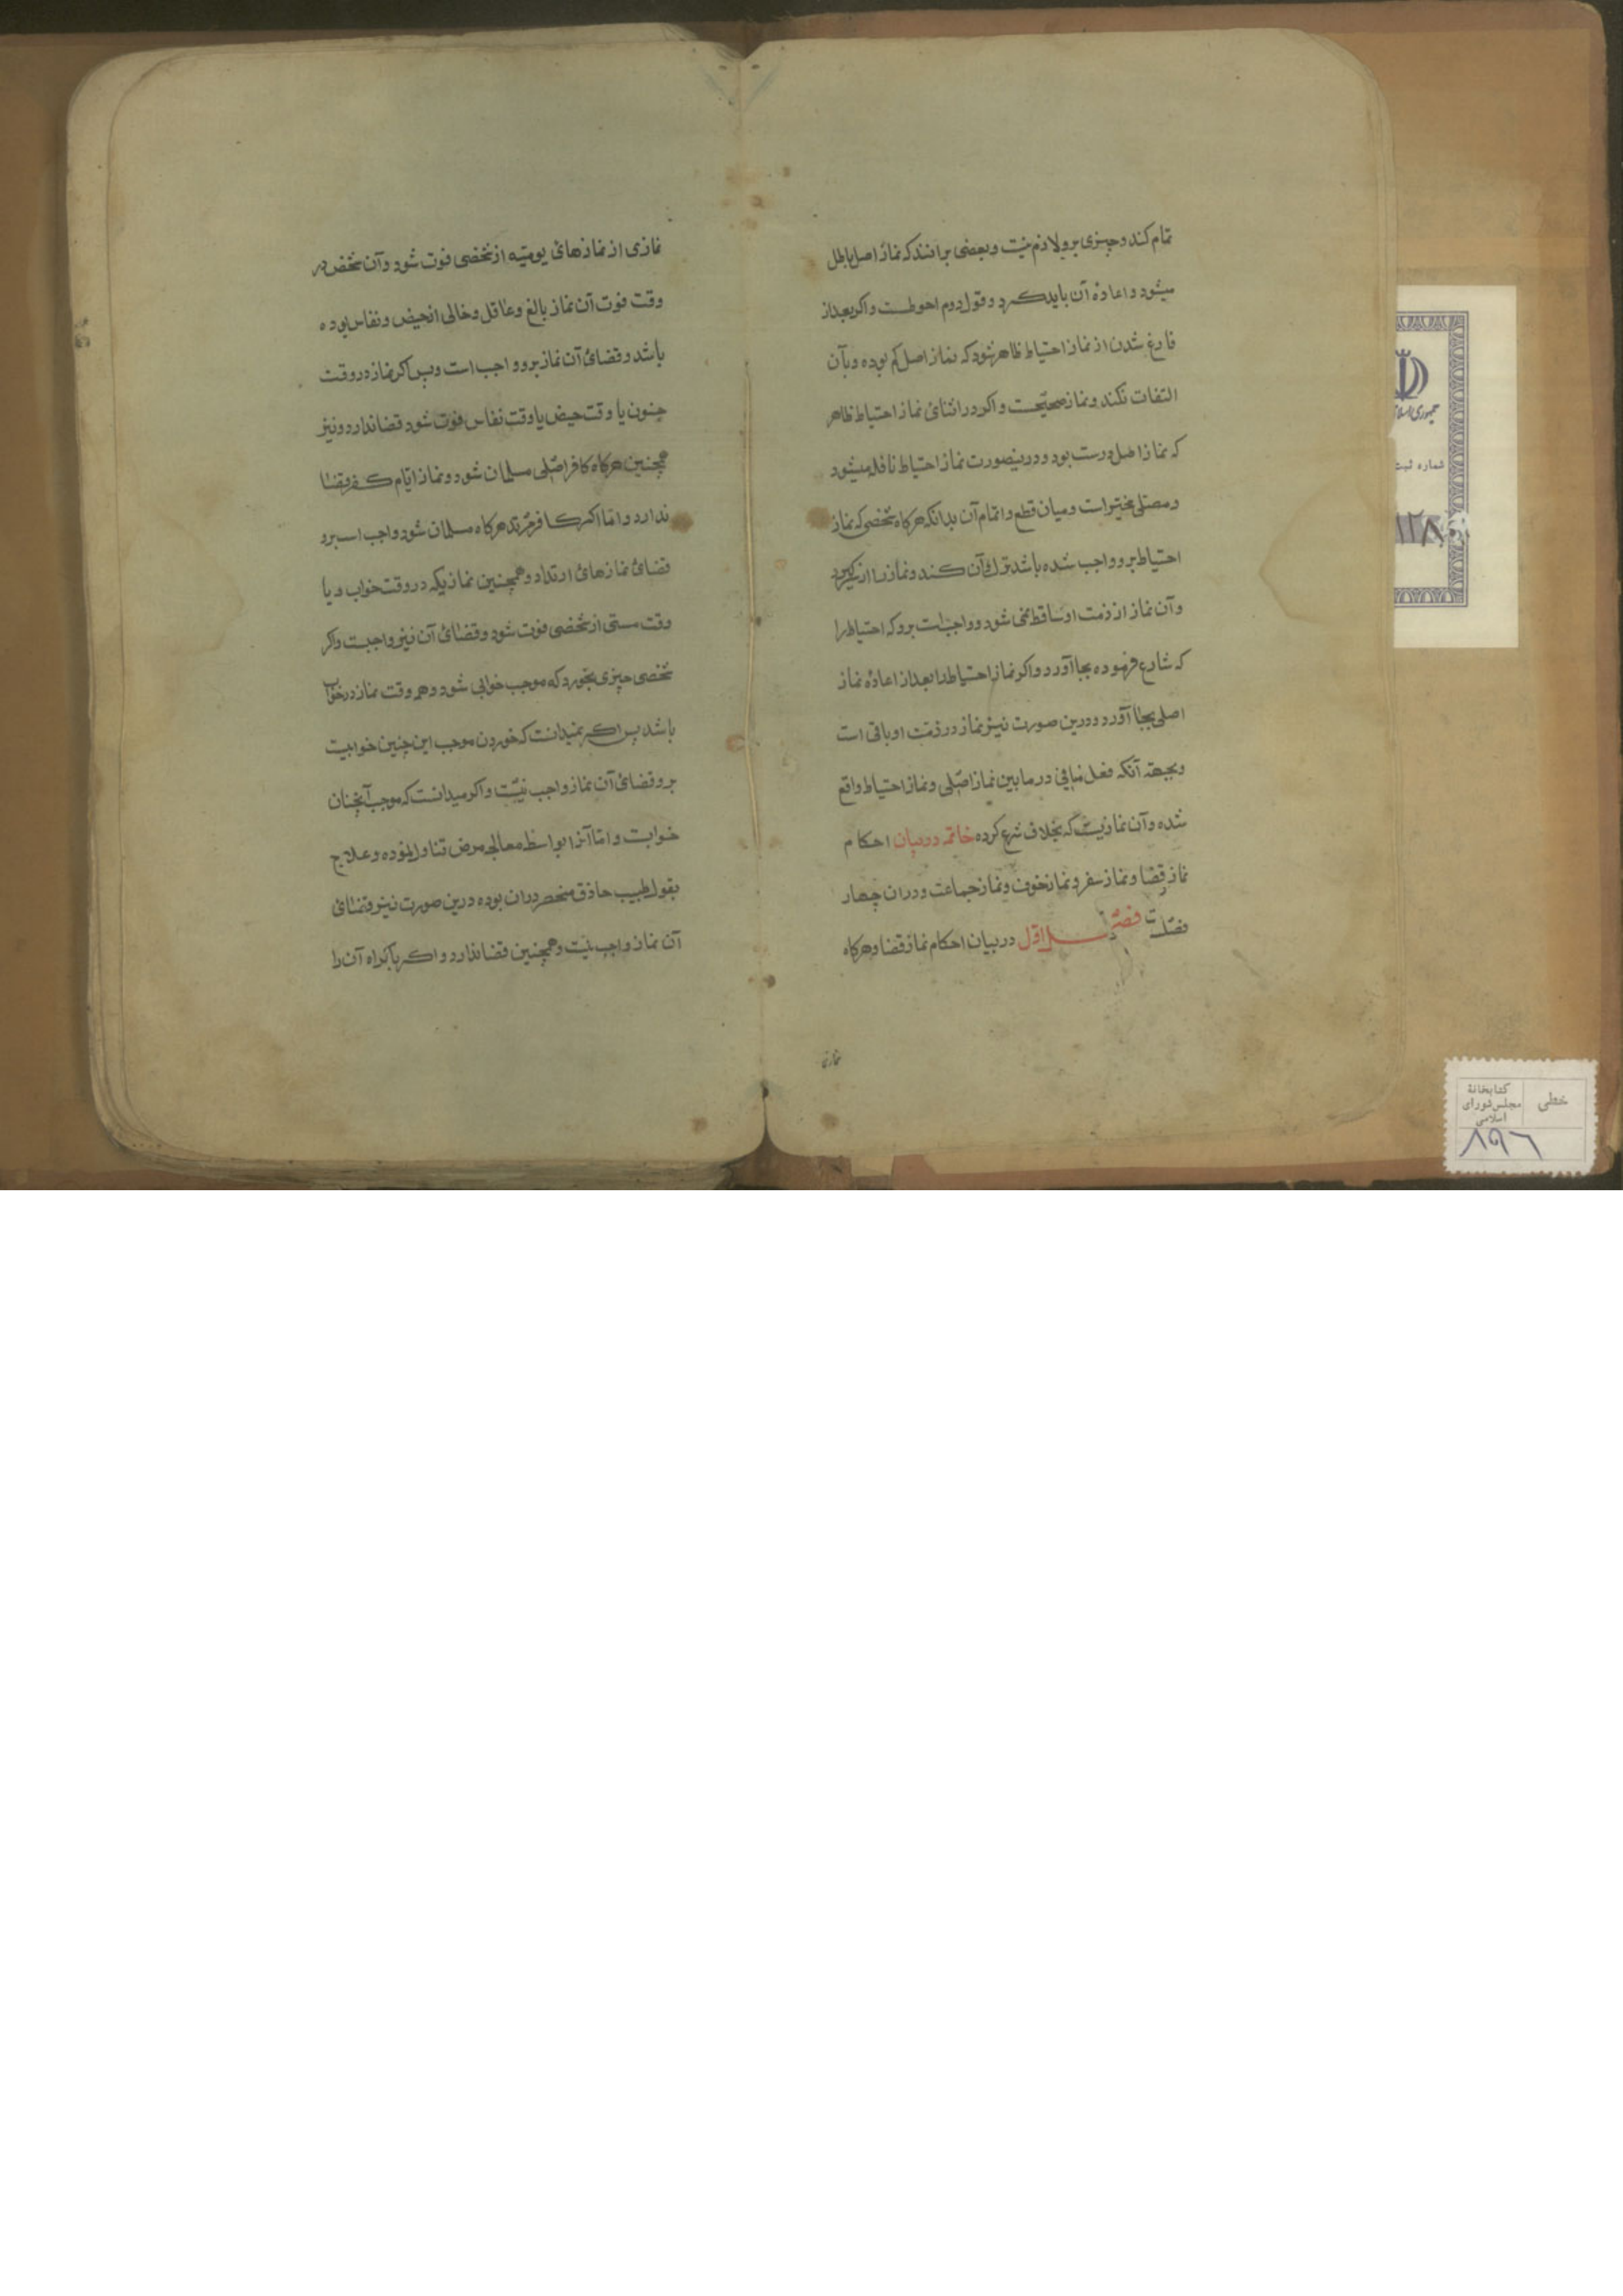 تمام کند و چیزی برو لازم نیست و بعضی برانند که نماز اصل باطل
میشود و اعادهٔ آن باید کرد و قول دوم احوطست و اکر بعد از
فارغ شدن از نماز احتیاط ظاهر شود که نماز اصل کم بوده و بآن
التفات نکند و نماز صحیحست و اکر در اثنای نماز احتیاط ظاهر
که نماز اصل درست بود و درینصورت نماز احتیاط نافله میشود
و مصلی مخیر است و میان قطع و اتمام آن بدانکه هرکاه شخصی که نماز
احتیاط برو واجب شده باشد ترک آن کند و نماز را از سر کیرد
و آن نماز از ذمت او ساقط نمی شود و واجب است برو که احتیاط را
که شارع فرموده بجا آورد و اکر نماز احتیاط را بعد از اعادهٔ نماز
اصلی بجا آورد و درین صورت نیز نماز در ذمت او باقی است
و بجهة آنکه فعل منافی در مابین نماز اصلی و نماز احتیاط واقع
شده و آن نمازیست که بخلاف شرع کرده خاتمه در بیان احکام
نماز قضا و نماز سفر و نماز خوف و نماز جماعت و در ان چهار
فصلست فصل اول در بیان احکام نماز قضا و هرکاه
نمازی
نمازی از نمازهای یومیه از شخصی فوت شود و آن شخص در
وقت فوت آن نماز بالغ و عاقل و خالی از حیض و نفاس بوده
باشد و قضای آن نماز برو واجب است و پس اکر نماز در وقت
جنون یا وقت حیض یا وقت نفاس فوت شود قضا ندارد و نیز
همچنین هرکاه کافر اصلی مسلمان شود و نماز ایام کفر قضا
ندارد و اما اکر کافر مرتد هرکاه مسلمان شود واجب است برو
قضای نمازهای ارتداد و همچنین نمازیکه در وقت خواب و یا
وقت مستی از شخصی فوت شود و قضای آن نیز واجبست و اکر
شخصی چیزی بخورد که موجب خوابی شود و هر وقت نماز در خواب
باشد پس اکر نمیدانست که خوردن موجب این چنین خوابیست
برو قضای آن نماز واجب نیست و اکر میدانست که موجب آنچنان
خوابست و اما آنرا بواسطه معالجه مرض تناول نموده و علاج
بقول طبیب حاذق منحصر در ان بوده درین صورت نیز قضای
آن نماز واجب نیست و همچنین قضا ندارد و اکر باکراه آن را
جمهوری اسلا
شماره ثبت
خطی
کتابخانهٔ
مجلس شورای
اسلامی
۸۹۶